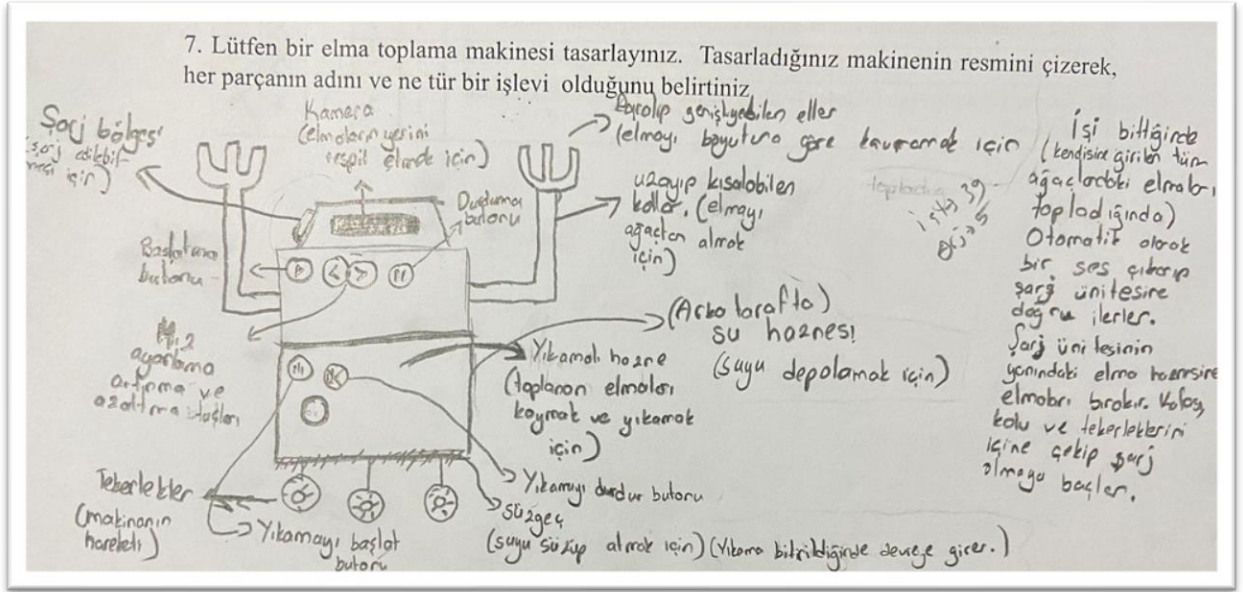 7. Lütfen bir elma toplama makinesi tasarlayınız. Tasarladığınız makinenin resmini çizerek,
her parçanın adını ve ne tür bir işlevi olduğunu belirtiniz
Şarj bölgesi
(şarj edilebilmesi için)
Kamera
(elmaların yerini
tespit etmek için)
Daralıp genişleyebilen eller
(elmayı boyutuna göre kavramak için
uzayıp kısalabilen
kollar. (elmayı
ağaçtan almak
için)
Durdurma
butonu
Başlatma
butonu
Hız
ayarlama
artırma ve
azaltma tuşları
(Arka tarafta)
su haznesi
(suyu depolamak için)
Yıkamalı hazne
(toplanan elmaları
koymak ve yıkamak
için)
Yıkamayı durdur butonu
süzgeç
(suyu süzüp almak için) (Yıkama bitirildiğinde devreye girer.)
Tekerlekler
(makinanın
hareketi)
Yıkamayı başlat
butonu
İşi bittiğinde
(kendisine girilen tüm
ağaçlardaki elmaları
topladığında)
Otomatik olarak
bir ses çıkarıp
şarj ünitesine
doğru ilerler.
Şarj ünitesinin
yanındaki elma haznesine
elmaları bırakır. Kafası,
kolu ve tekerleklerini
içine çekip şarj
olmaya başlar.